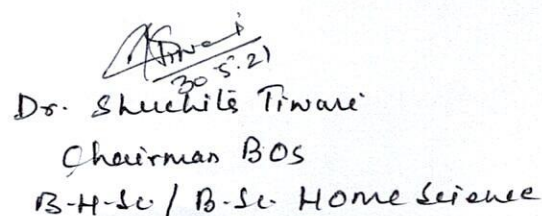 30.5.21
Dr. Shuchita Tiwari
Chairman BOS
B-H-Sc. / B.Sc. Home Science